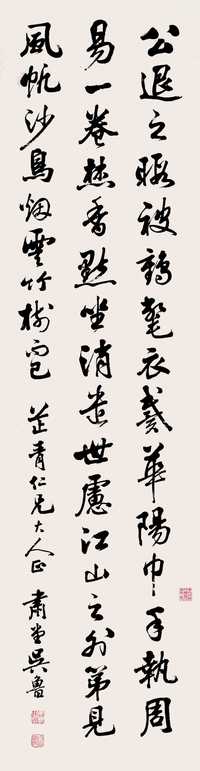 公退之暇被鶴氅衣戴華陽巾手執周
易一卷焚香默坐消遣世慮江山之外第見
風帆沙鳥烟雲竹樹而已
芷青仁兄大人正 肅堂吳魯